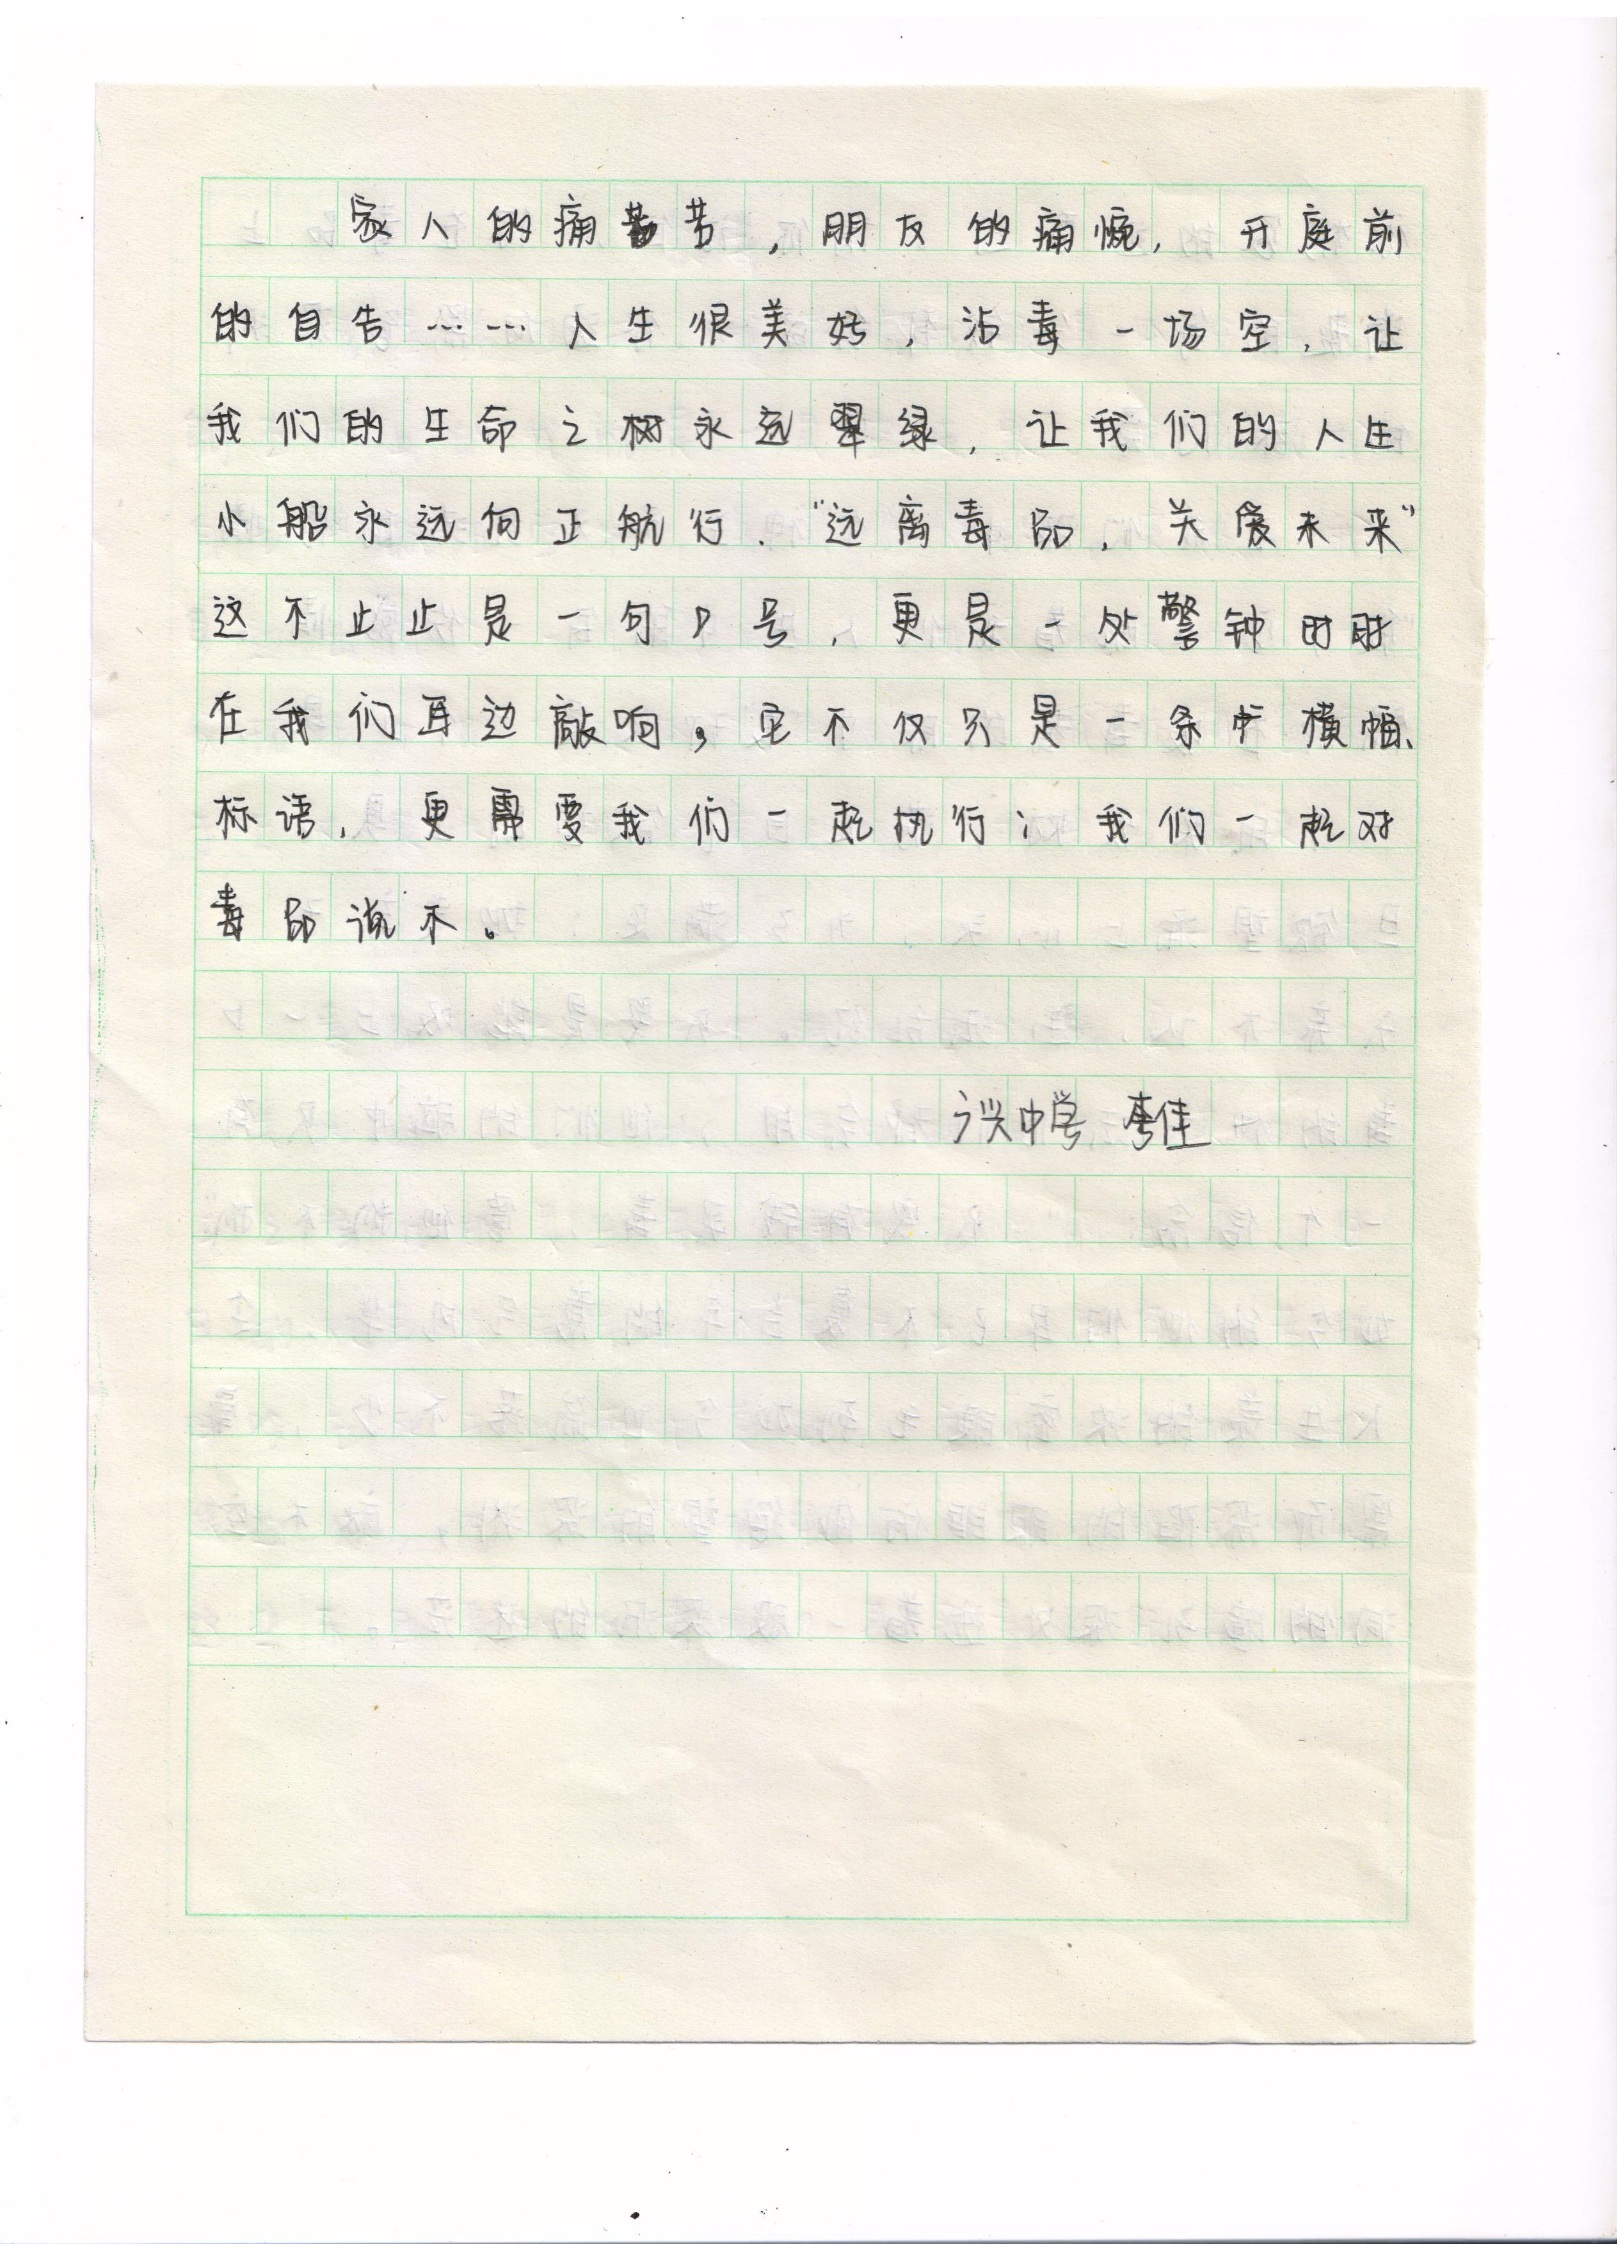 家人的痛苦,朋友的痛惋,开庭前
的自告……人生很美好,沾毒一场空,让
我们的生命之树永远翠绿,让我们的人生
小船永远向正航行.“远离毒品,关爱未来”
这不止止是一句口号,更是一处警钟时时
在我们耳边敲响,它不仅只是一条横幅、
标语,更需要我们一起执行;我们一起对
毒品说不。
广兴中学 李佳